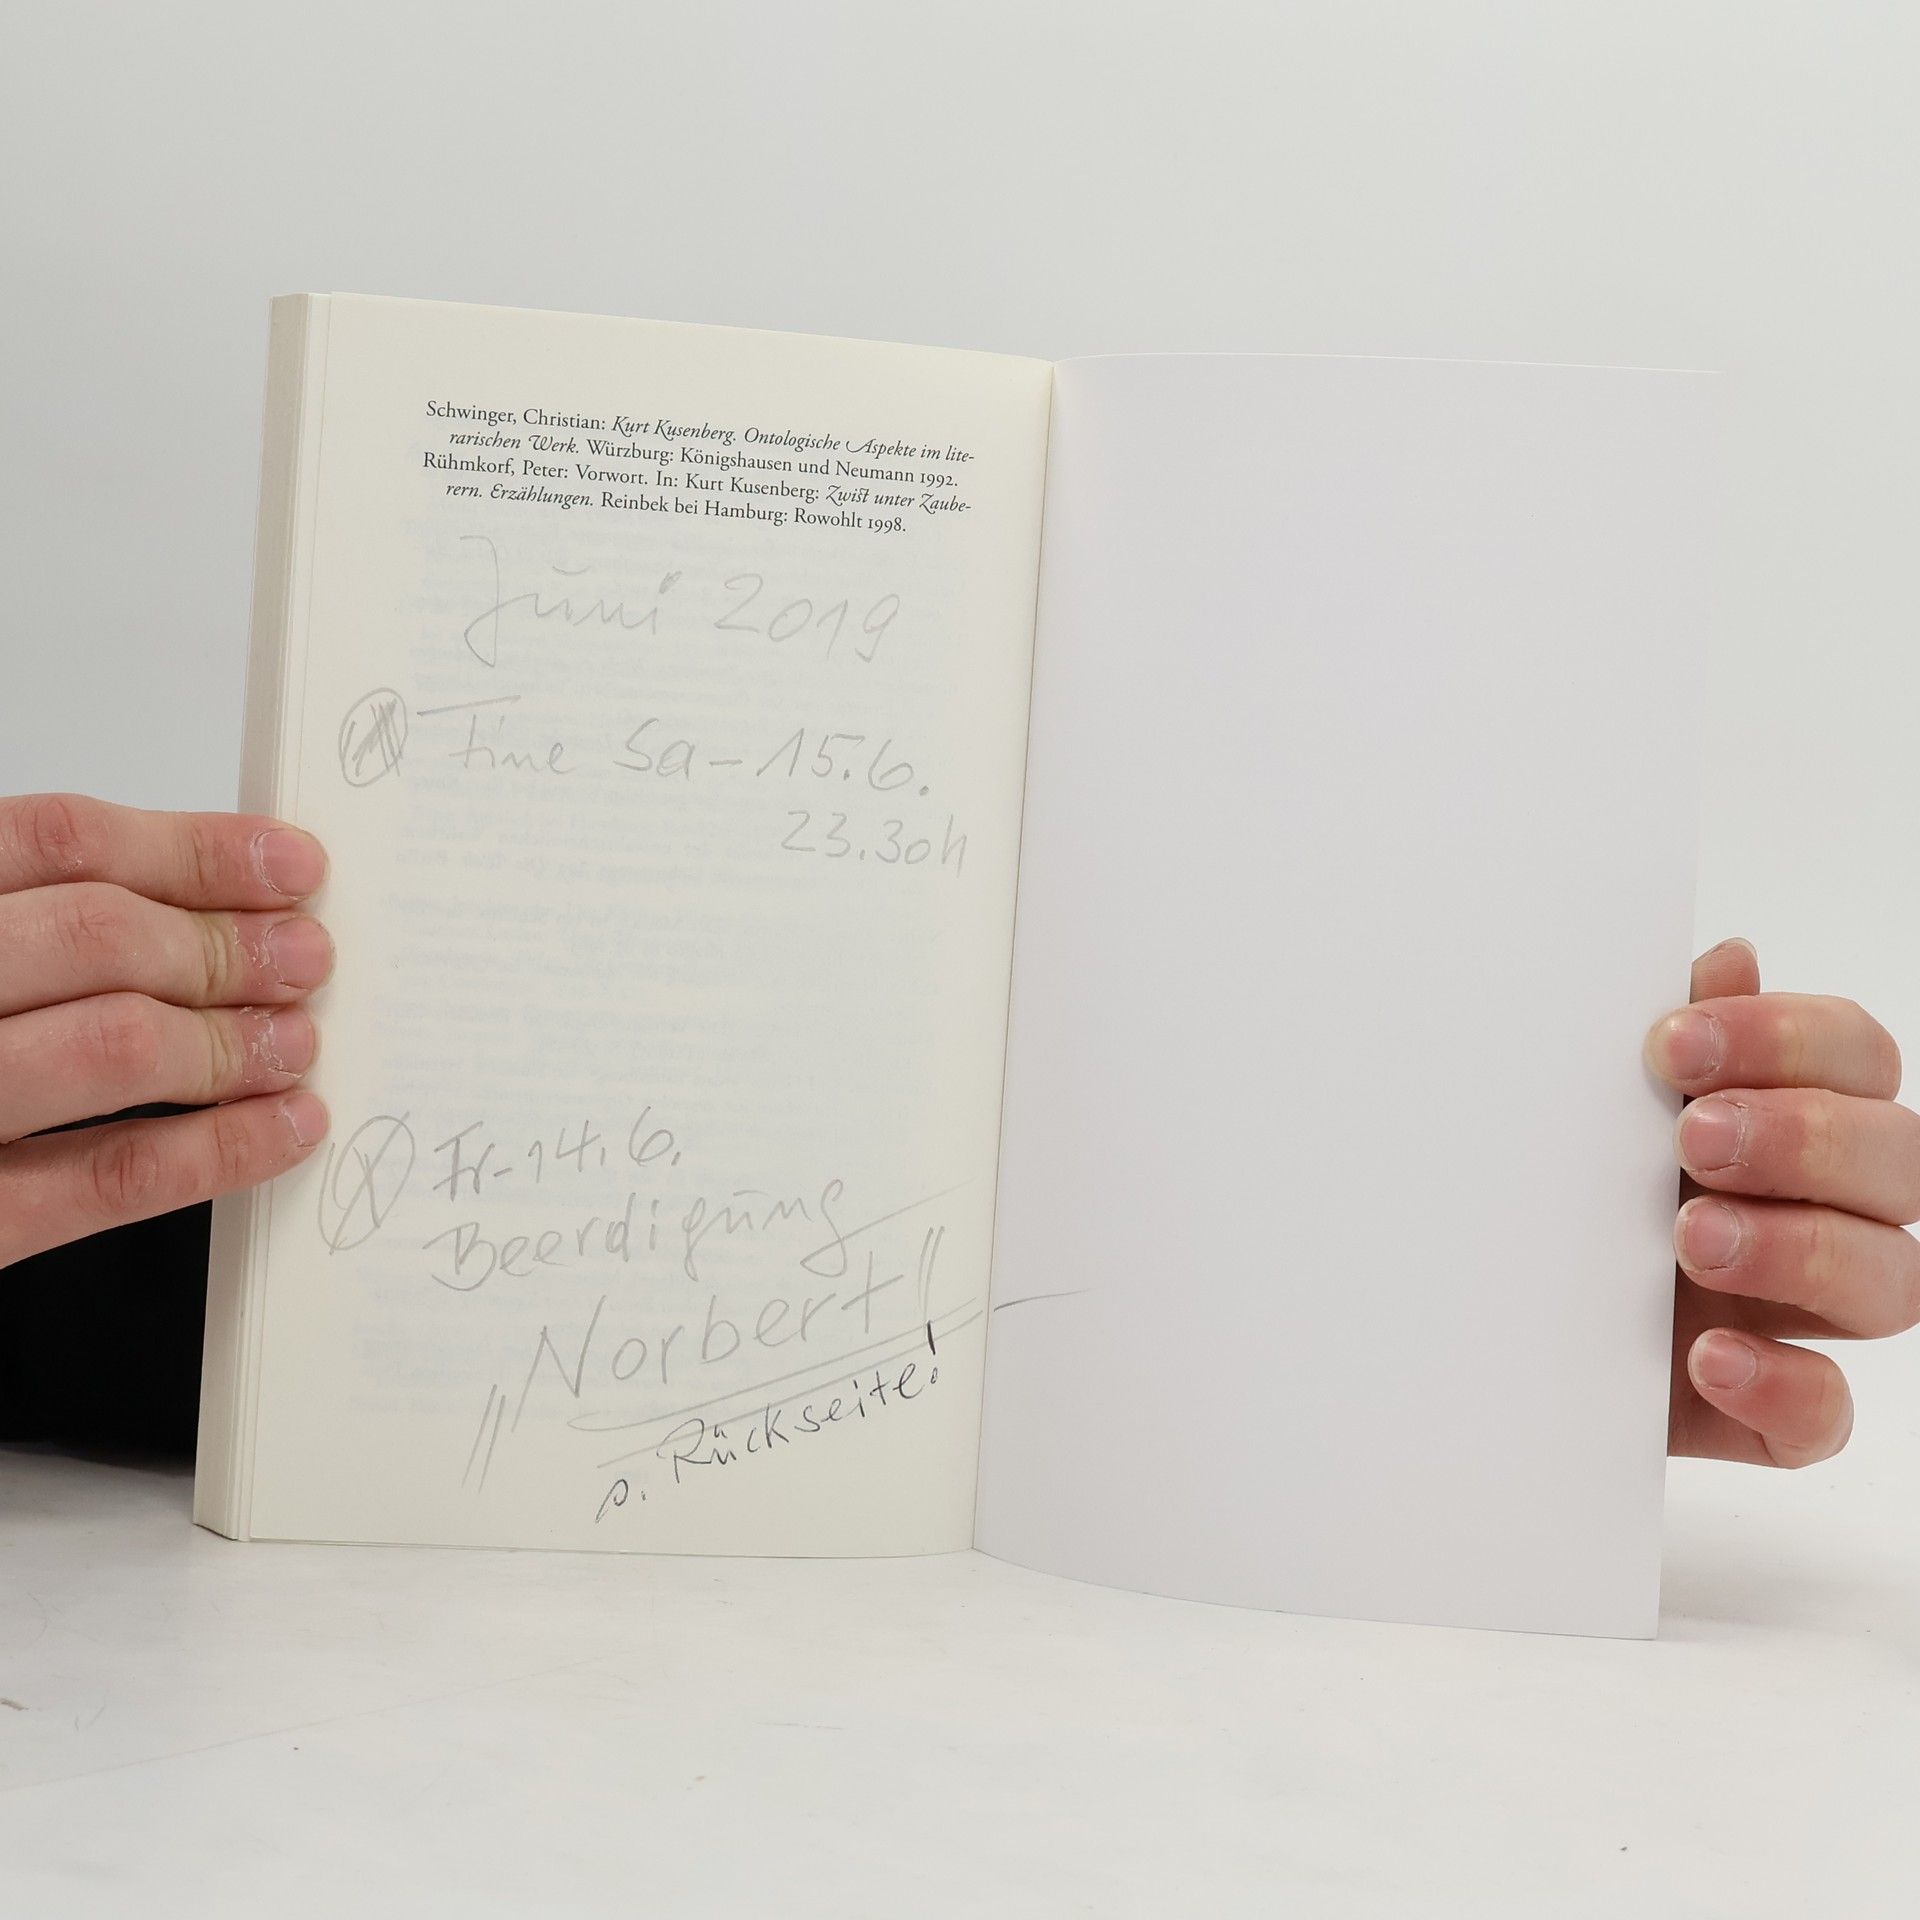 Schwinger, Christian: Kurt Kusenberg. Ontologische Aspekte im lite-
rarischen Werk. Würzburg: Königshausen und Neumann 1992.
Rühmkorf, Peter: Vorwort. In: Kurt Kusenberg: Zwist unter Zaube-
rern. Erzählungen. Reinbek bei Hamburg: Rowohlt 1998.
Juni 2019
Fine Sa - 15.6.
23.30h
Fr - 14.6.
Beerdigung
„Norbert"
s. Rückseite!